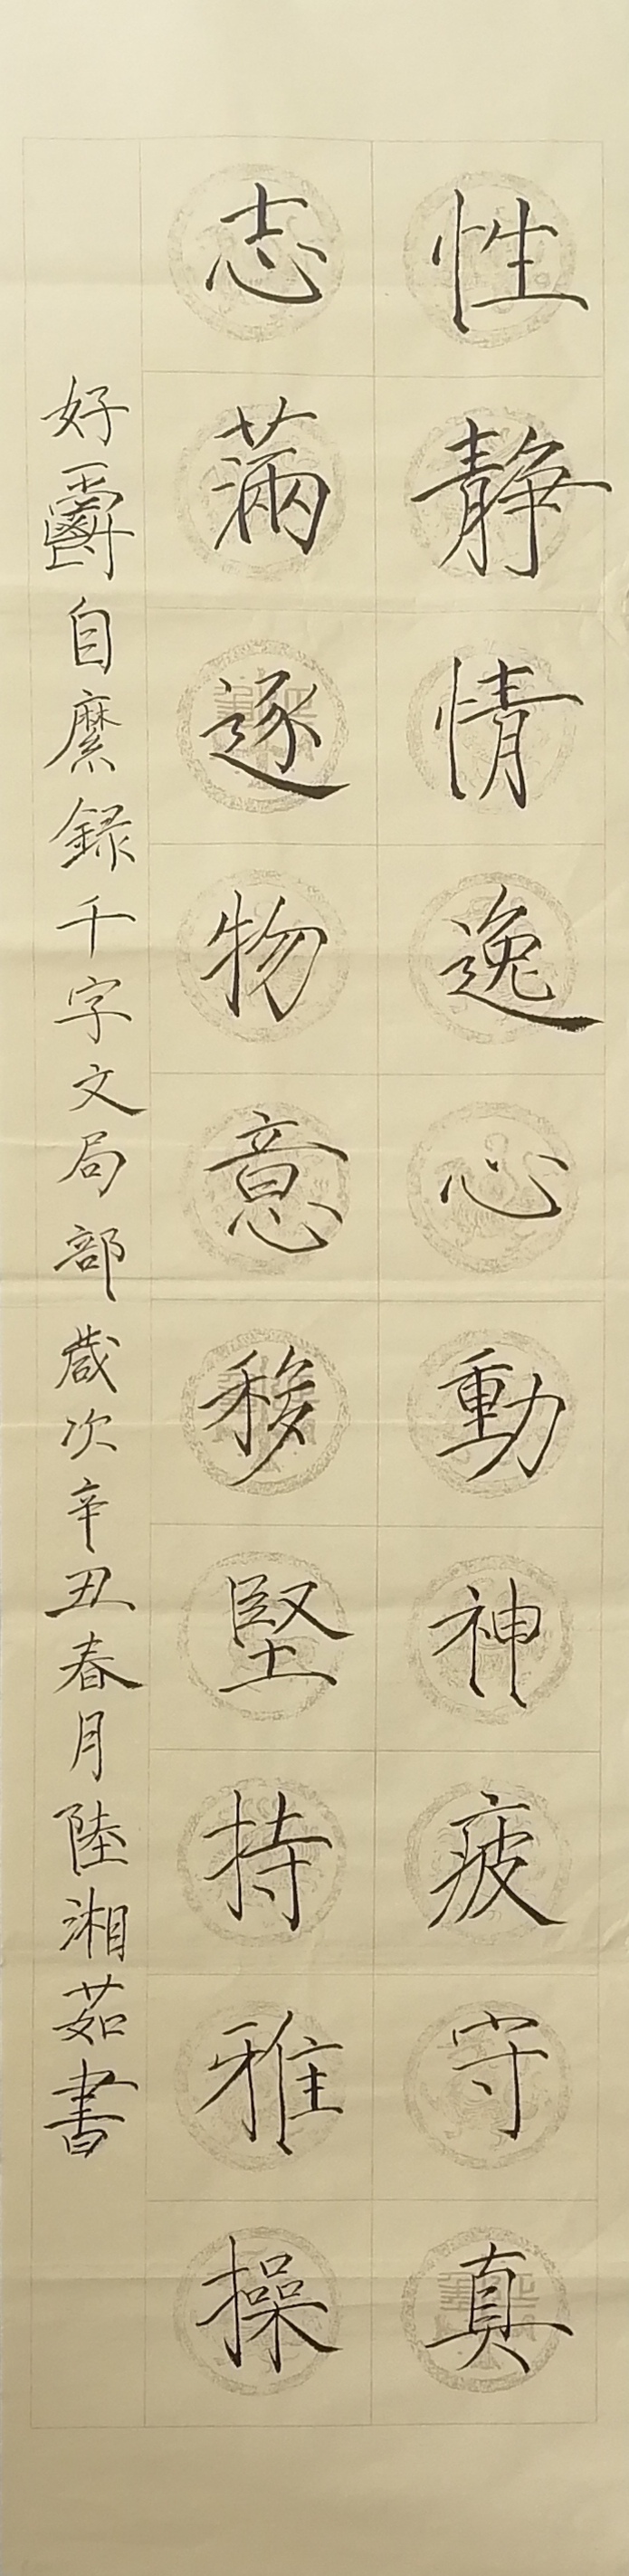 性静情逸心動神疲守真
志滿逐物意移堅持雅操
好爵自縻錄千字文局部歲次辛丑春月陸湘茹書